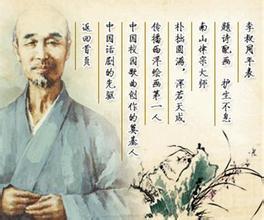 李叔同年表
题诗配画 护生不息
南山律宗大师
朴拙圆满，浑若天成
传播西洋绘画第一人
中国校园歌曲创作的奠基人
中国话剧的先驱
返回首页